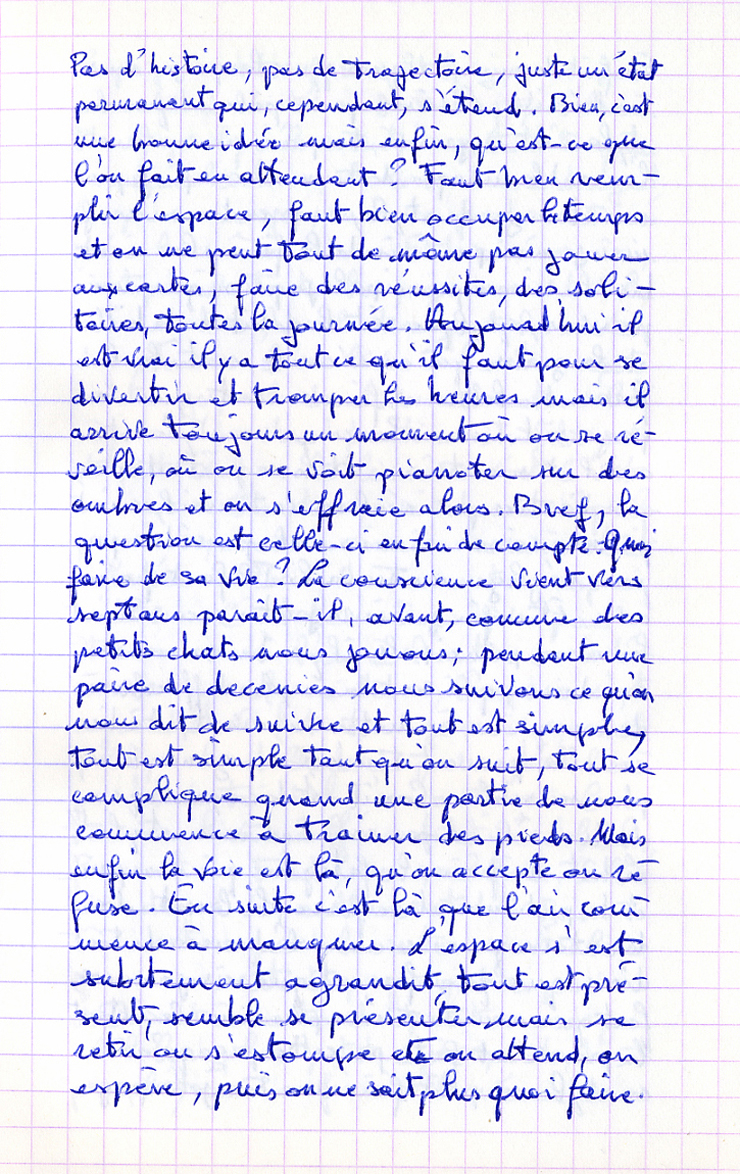 Pas d'histoire, pas de trajectoire, juste un état
permanent qui, cependant, s'étend. Bien, c'est
une bonne idée mais enfin, qu'est-ce que
l'on fait en attendant ? Faut bien rem-
plir l'espace, faut bien occuper le temps
et on ne peut tout de même pas jouer
aux cartes, faire des réussites, des soli-
taires, toutes la journée. Aujourd'hui il
est vrai il y a tout ce qu'il faut pour se
divertir et tromper les heures mais il
arrive toujours un moment où on se ré-
veille, où on se voit pianoter sur des
ombres et on s'effraie alors. Bref, la
question est celle-ci en fin de compte : Quoi
faire de sa vie ? La conscience vient vers
sept ans paraît-il, avant, comme des
petits chats nous jouons ; pendant une
paire de decenies nous suivons ce qu'on
nous dit de suivre et tout est simple,
tout est simple tant qu'on suit, tout se
complique quand une partie de nous
commence à trainer des pieds. Mais
enfin la voie est là, qu'on accepte ou re
fuse. En suite c'est là que l'air com
mence à manquer. L'espace s'est
subitement agrandit, tout est pré-
sent, semble se présenter mais se
retir ou s'estompe et on attend, on
espère, puis on ne sait plus quoi faire.